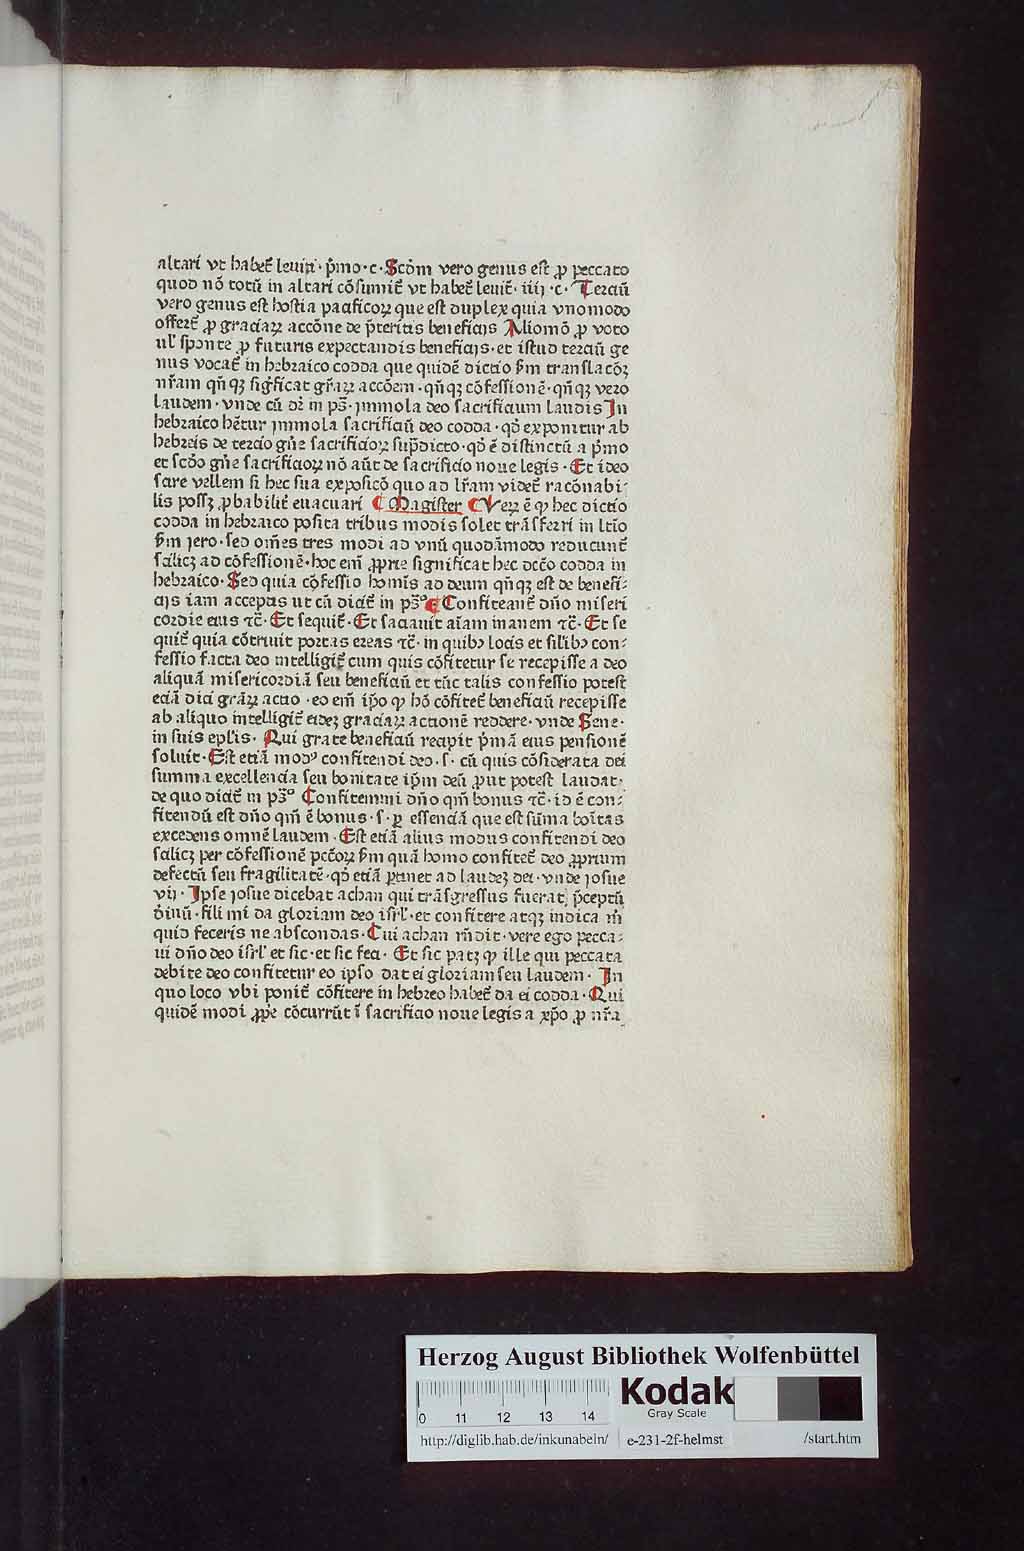 altari vt habet̃ leuiti·p̃mo·c·Scd̃m vero genus est ꝓ peccato
quod nō totū in altari cōsumit̃ vt habet̃ leuit̃·iiij·c·Terciū
vero genus est hostia pacificoꝝ que est duplex quia vnomodo
offert̃ ꝓ graciaꝝ accōne de p̃teritis beneficijs Aliomō ꝓ voto
ul' sponte ꝓ futuris expectandis beneficijs·et istud terciū ge
nus vocat̃ in hebraico codda que quidē dictio ẜm translacōꝫ
nr̃am qn̄qꝫ sig̃ficat gr̃aꝝ accōem·qn̄qꝫ cōfessionē·qn̄qꝫ vero
laudem·vnde cū dr̄ in ps̃·jmmola deo sacrificium laudis In
hebraico hēt̃ur jmmola sacrificiū deo codda·qd̓ exponitur ab
hebreis de tercio gn̄e sacrificioꝝ sup̃dicto·qd̓ ē distinctū a p̃mo
et scd̓o gn̄e sacrificioꝝ nō aūt de sacrificio noue legis·Et ideo
scire vellem si hec sua exposicō quo ad lr̃am videt̃ racōnabi⸗
lis possꝫ ꝓbabilit̃ euacuari ¶ Magister ¶ Veꝝ ē ꝙ hec dictio
codda in hebraico posita tribus modis solet trāsferri in ltīo
ẜm jero·sed om̄es tres modi ad vnū quodāmodo reducunt̃
sālicꝫ ad cōfessionē·hoc em̄ ꝓprie significat hec dcc̃o codda in
hebraico·Sed quia cōfessio homīs ad deum qn̄qꝫ est de benefi⸗
cijs iam acceptis ut cū dicit̃ in ps̃º ¶ Confiteant̃ dn̄o miseri
cordie eius ⁊c̃·Et sequit̃·Et saciauit aīam inanem ⁊c̃·Et se
quit̃ quia cōtriuit portas ereas ⁊c̃·in quibꝰ locis et sil'ibꝰ con⸗
fessio facta deo intelligit̃ cum quis cōfitetur se recepisse a deo
aliquā misericordiā seu beneficiū et tūc talis confessio potest
eciā dici gr̃aꝝ actio·eo em̄ ip̄o ꝙ hō cōfitet̃ beneficiū recepisse
ab aliquo intelligit̃ eideꝫ graciaꝝ actionē reddere·vnde Sene·
in suis epl'is·Qui grate beneficiū recipit p̃mā eius pensionē
soluit·Est eciā modꝰ confitendi deo·s·cū quis cōsiderata dei
summa excellencia seu bonitate ip̄m deū ꝓut potest laudat·
de quo dicit̃ in ps̃º Confitemini dn̄o qm̄ bonus ⁊c̃·id ē con⸗
fitendū est dn̄o qm̄ ē bonus·s·ꝑ essenciā que est sūma boītas
excedens omnē laudem·Est eciā alius modus confitendi deo
sālicꝫ per cōfessionē pcc̄oꝝ ẜm quā homo confitet̃ deo ꝓprium
defectū seu fragilitatē·qd̓ eciā ꝑtinet ad laudeꝫ dei·vnde josue
vij·Ipse josue dicebat achan qui trāsgressus fuerat p̃ceptū
d̓inū·fili mi da gloriam deo isrl'·et confitere atqꝫ indica m̃
quid feceris ne abscondas·Cui achan rn̄dit·vere ego pecca⸗
ui dn̄o deo isrl' et sic·et sic feci·Et sic patꝫ ꝙ ille qui peccata
debite deo confitetur eo ipso dat ei gloriam seu laudem·In
quo loco vbi ponit̃ cōfitere in hebreo habet̃ da ei codda·Qui
quidē modi ꝓp̃e cōcurrūt ī sacrificio noue legis a xp̄o ꝓ nr̃a

Herzog August Bibliothek Wolfenbüttel
0 11 12 13 14
Kodak
Gray Scale
http://diglib.hab.de/inkunabeln/ e-231-2f-helmst /start.htm